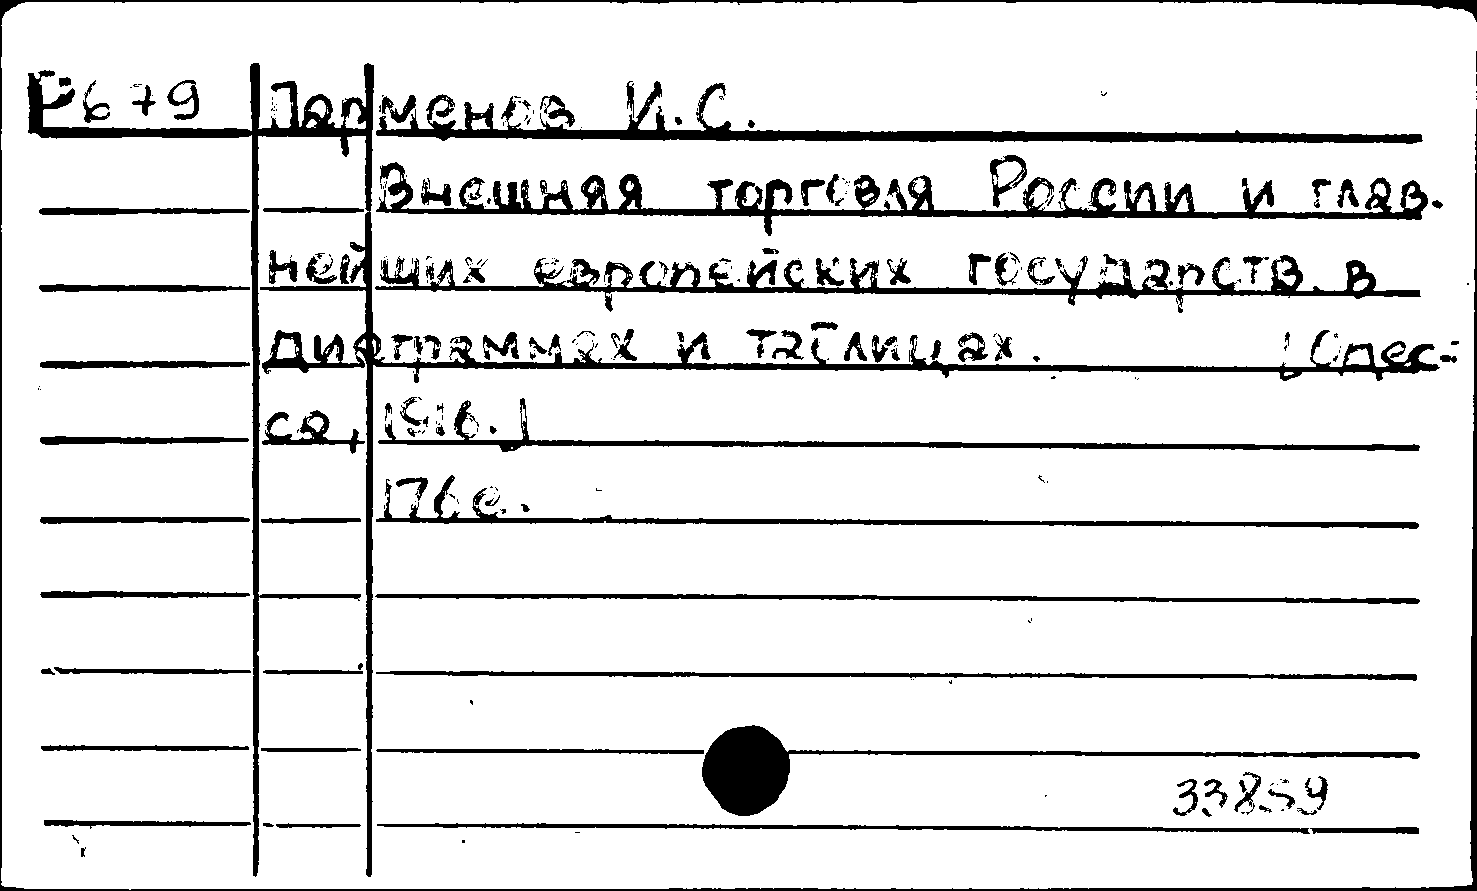 Р679 Парменов И.С.
Внешняя торговля России и глав-
нейших европейских государств в
диаграммах и таблицах. [Одес-
са, 1916.]
176 с.
33859